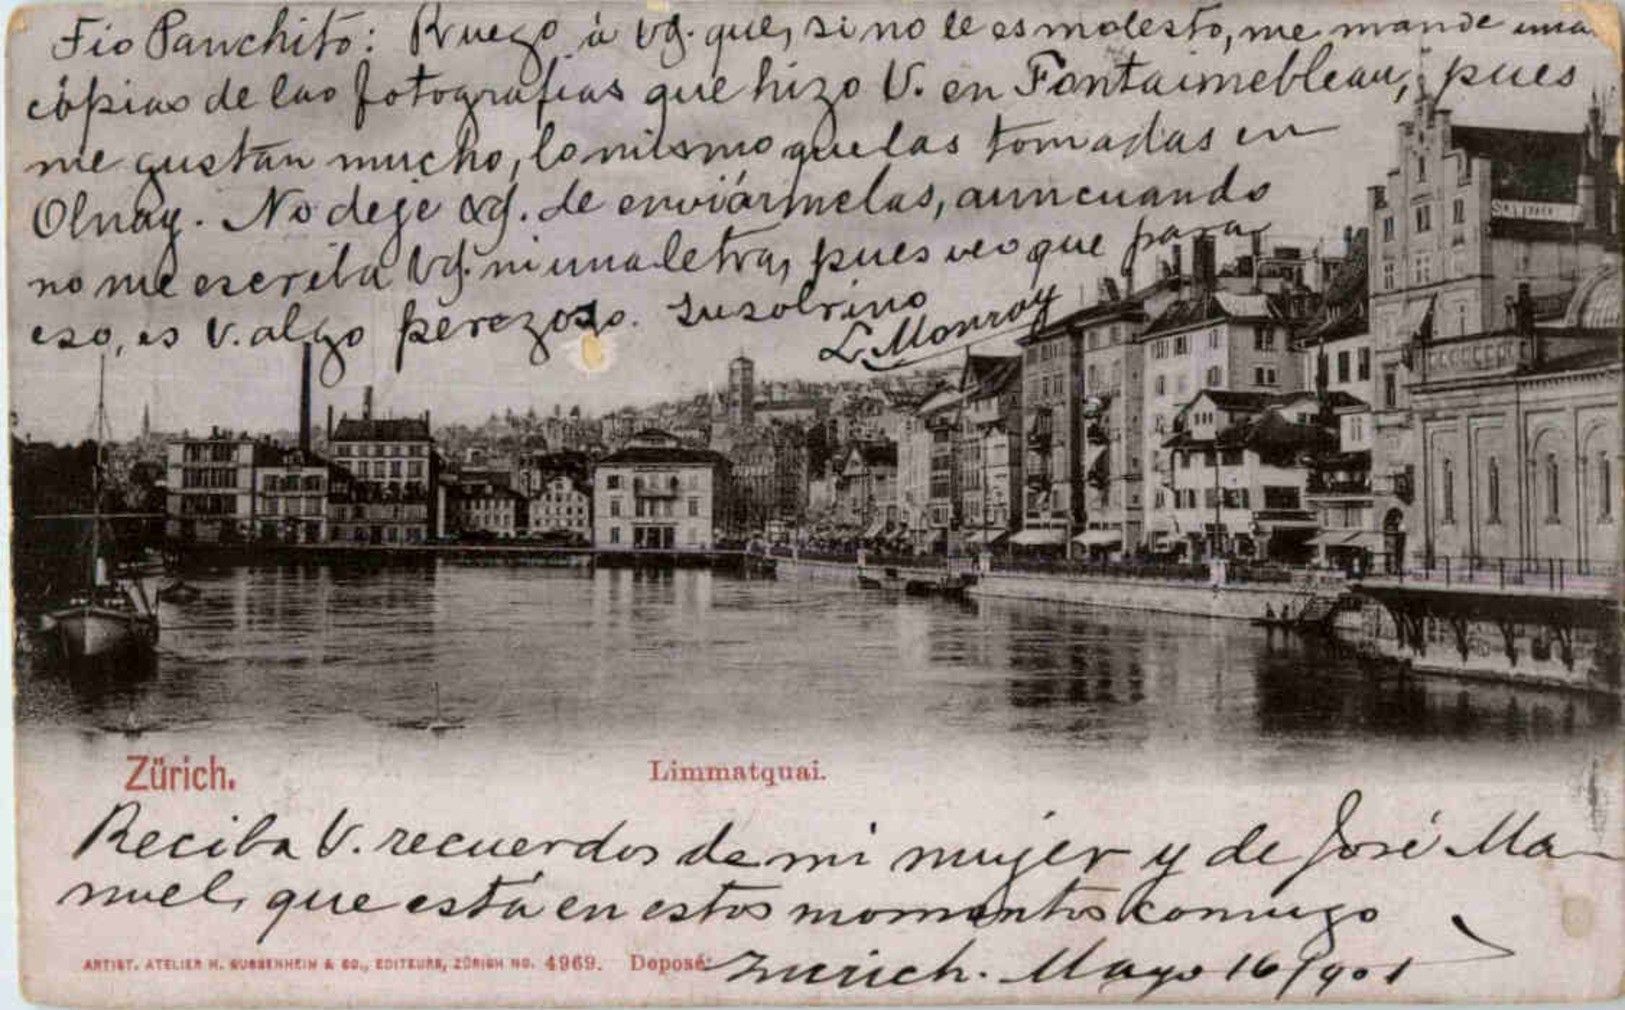 Tio Panchito: Ruego á Vd. que, si no le es molesto, me mande una
cópias de las fotografias que hizo V. en Fontainebleau, pues
me gustan mucho, lo mismo que las tomadas en
Olnay. No deje Vd. de enviármelas, aun cuando
no me escriba Vd. ni una letra, pues veo que para
eso, es V. algo perezoso. Su sobrino
L. Monroy
Zürich.
Limmatquai.
Reciba V. recuerdos de mi mujer y de José Ma-
nuel, que está en estos momentos conmigo
ARTIST. ATELIER H. GUGGENHEIM & CO., EDITEURS, ZÜRICH NO. 4969. Deposé.
Zurich. Mayo 16/901